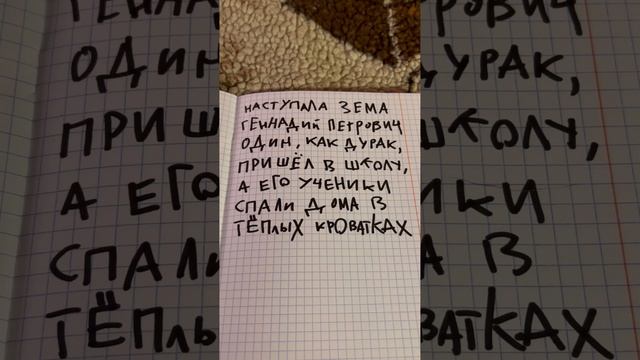 НАСТУПАЛА ЗЕМА
ГЕННАДИЙ ПЕТРОВИЧ
ОДИН, КАК ДУРАК,
ПРИШЁЛ В ШКОЛУ,
А ЕГО УЧЕНИКИ
СПАЛИ ДОМА В
ТЁПЛЫХ КРОВАТКАХ